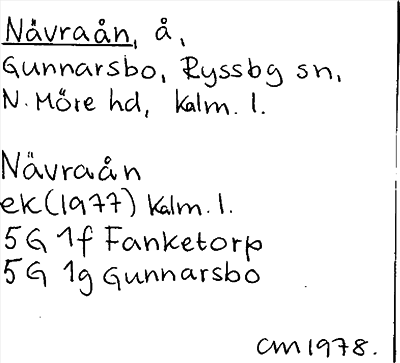 Nävraån, å,
Gunnarsbo, Ryssbg sn,
N. Möre hd, Kalm. l.
Nävraån
ek (1977) Kalm. l.
5G 1f Fanketorp
5G 1g Gunnarsbo
CM 1978.